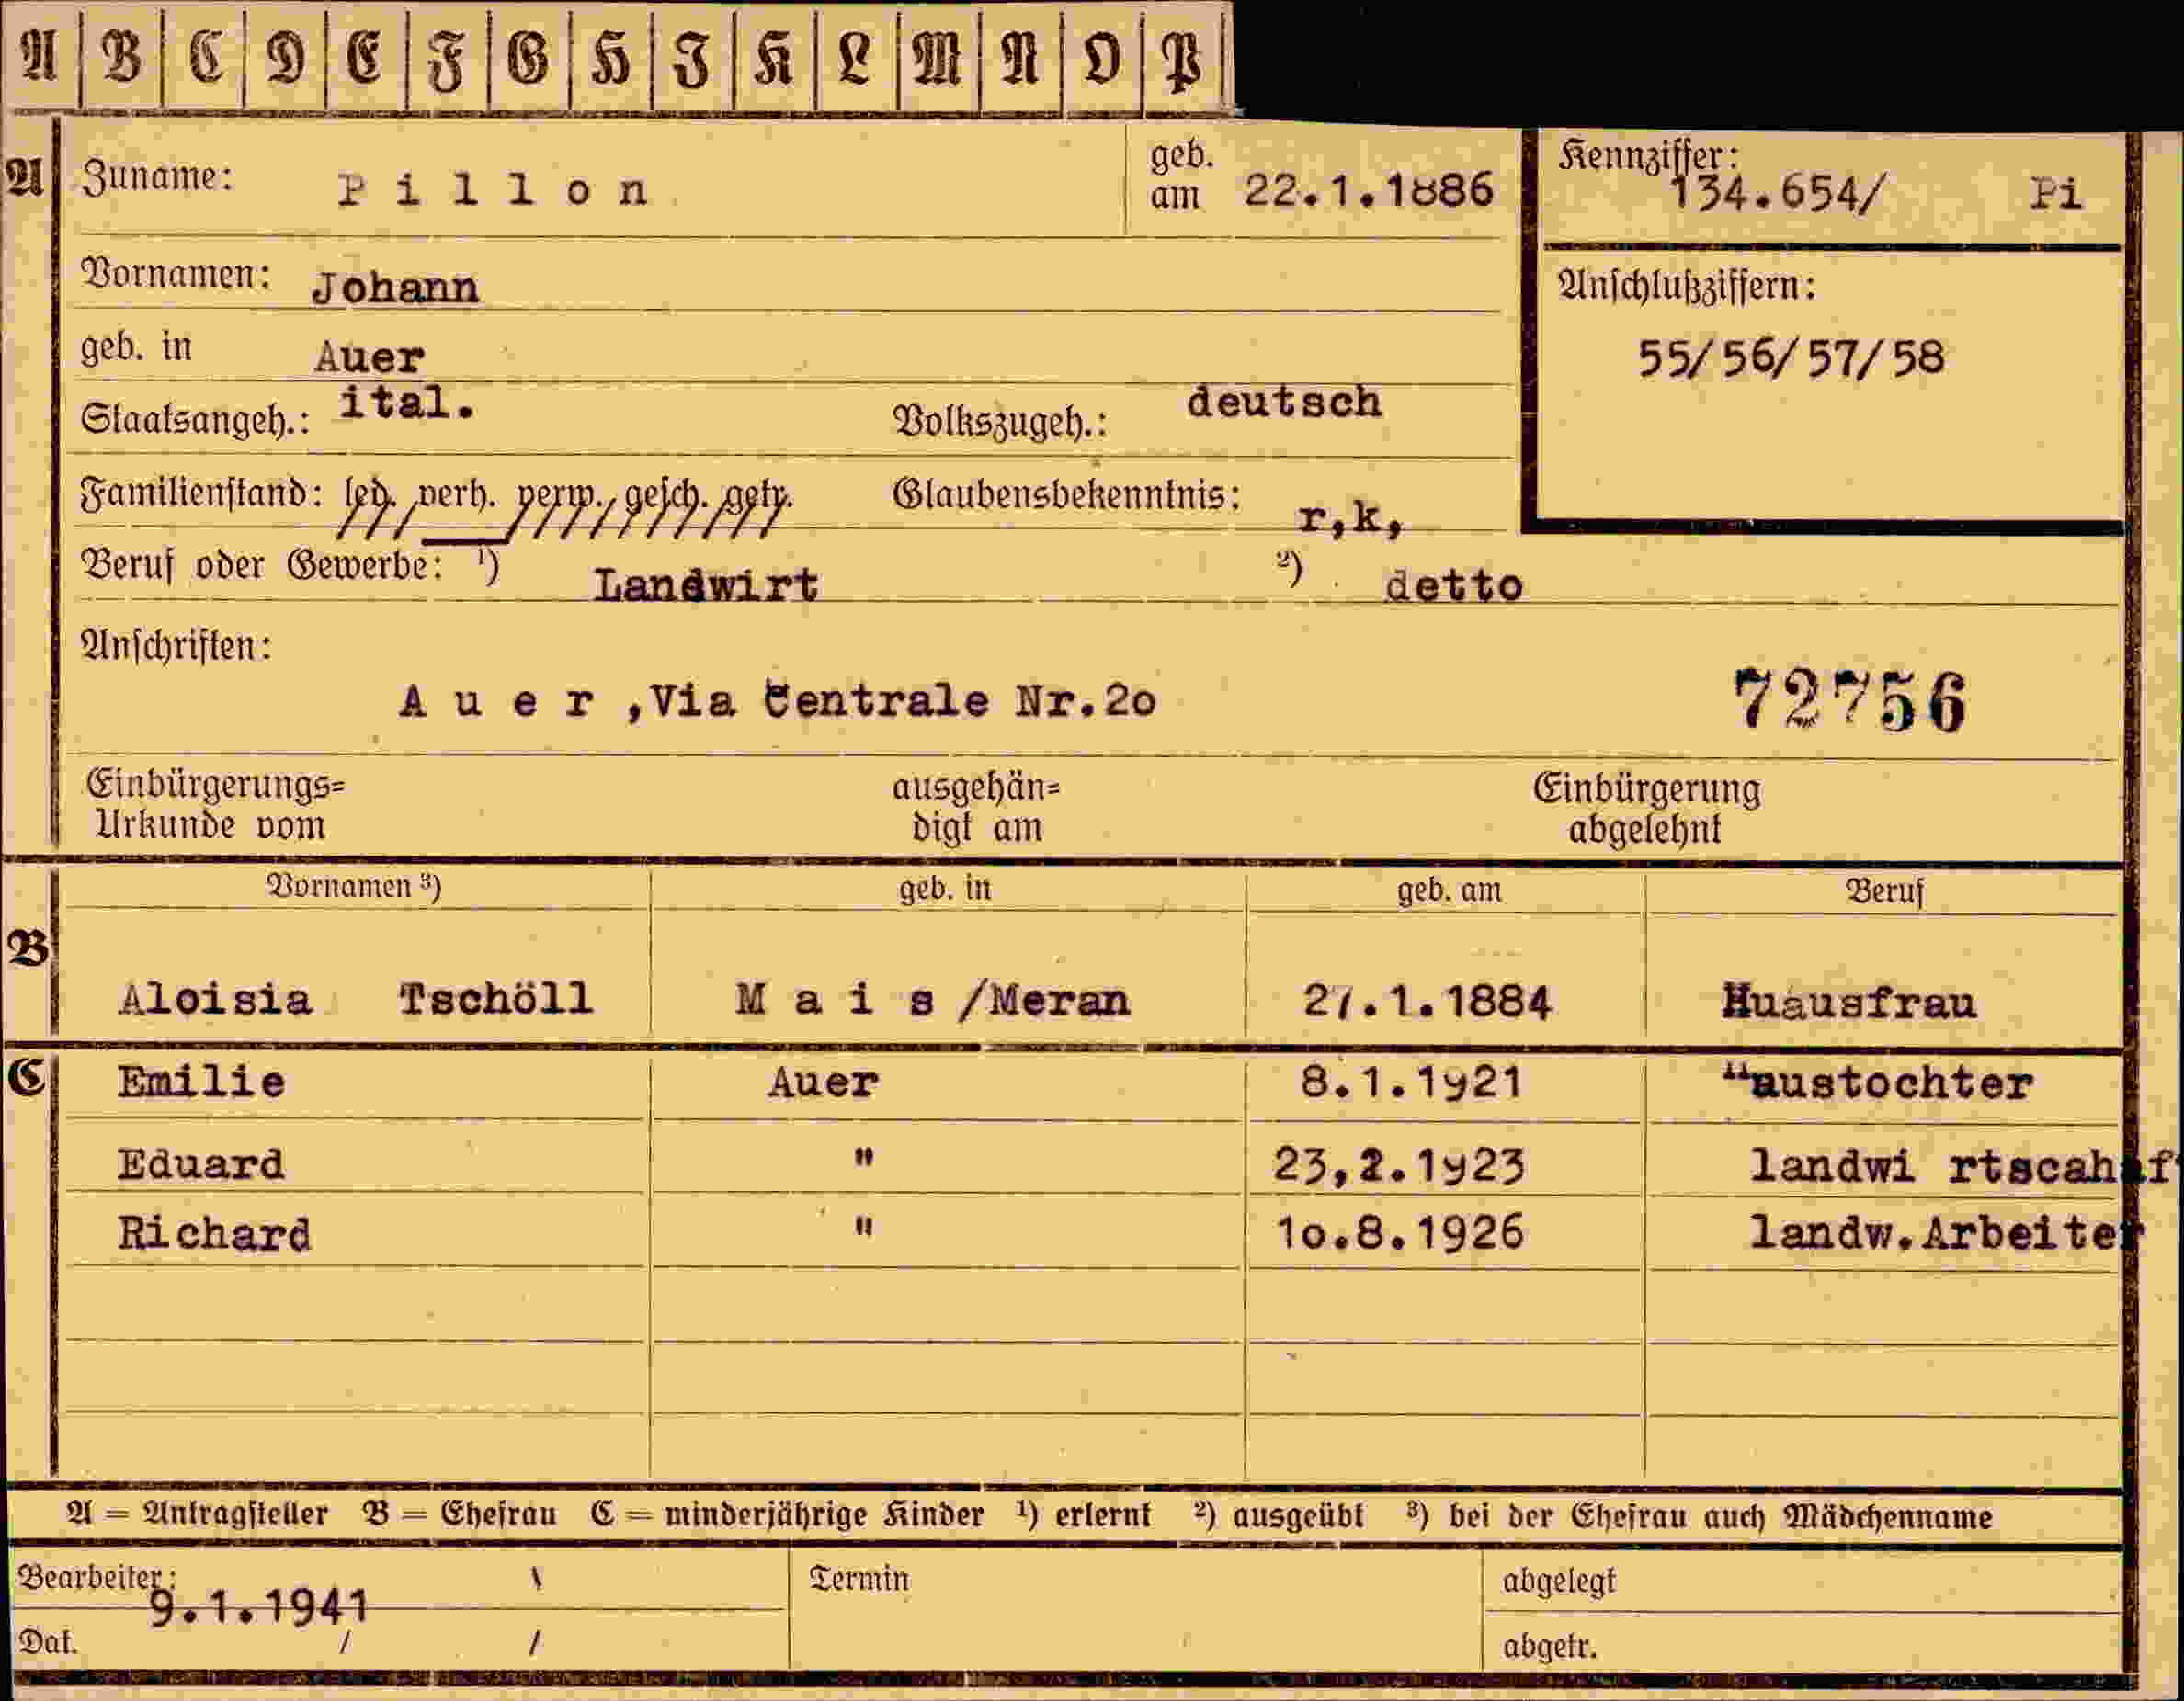 A B C D E F G H I K L M N O P
A Zuname: Pillon geb. am 22.1.1886 Kennziffer: 134.654/ Pi
Vornamen: Johann Anschlußziffern:
geb. in Auer 55/56/57/58
Staatsangeh.: ital. Volkszugeh.: deutsch
Familienstand: led. verh. verw. gesch. getr. Glaubensbekenntnis: r,k,
Beruf oder Gewerbe: ¹) Landwirt ²) detto
Anschriften:
Auer ,Via Centrale Nr.2o 72756
Einbürgerungs= ausgehän= Einbürgerung
Urkunde vom digt am abgelehnt
Vornamen ³) geb. in geb. am Beruf
B
Aloisia Tschöll Mais/Meran 27.1.1884 Huausfrau
C Emilie Auer 8.1.1921 Haustochter
Eduard " 23,2.1923 landwi rtscahaf
Richard " 1o.8.1926 landw.Arbeiter
A = Antragsteller B = Ehefrau C = minderjährige Kinder ¹) erlernt ²) ausgeübt ³) bei der Ehefrau auch Mädchenname
Bearbeiter: Termin abgelegt
9.1.1941
Dat. / / abgetr.